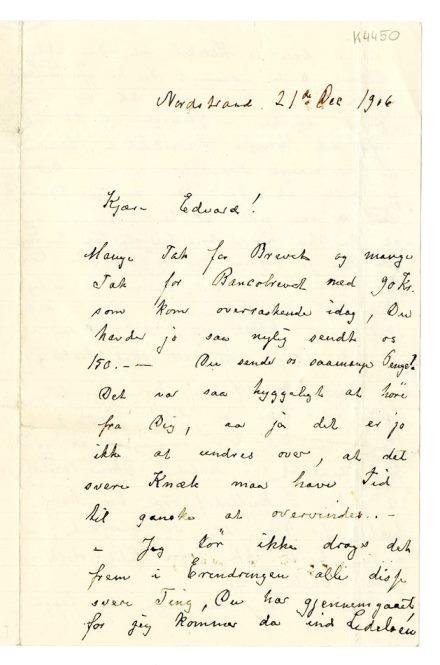 K4450
Nordstrand 21de Dec 1906
Kjære Edvard!
Mange Tak for Brevet og mange
Tak for Bancobrevet med 90 Kr.
som kom overraskende idag, Du
havde jo saa nylig sendt os
150.-— Du sender os saamange Penge!
Det var saa hyggeligt at höre
fra Dig, aa ja det er jo
ikke at undres over, at det
svære Knæk maa have Tid
til ganske at overvindes.. -
- Jeg tör ikke drage det
frem i Erindringen alle disse
svære Ting, Du har gjennemgaaet
for jeg kommer da ind